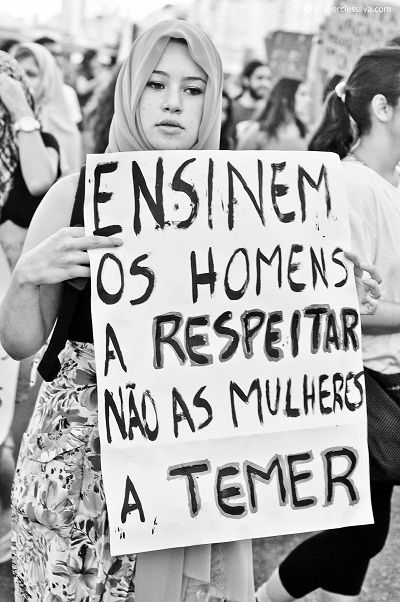 shercle3silva.com
ENSINEM
OS HOMENS
A RESPEITAR
NÃO AS MULHERES
A TEMER